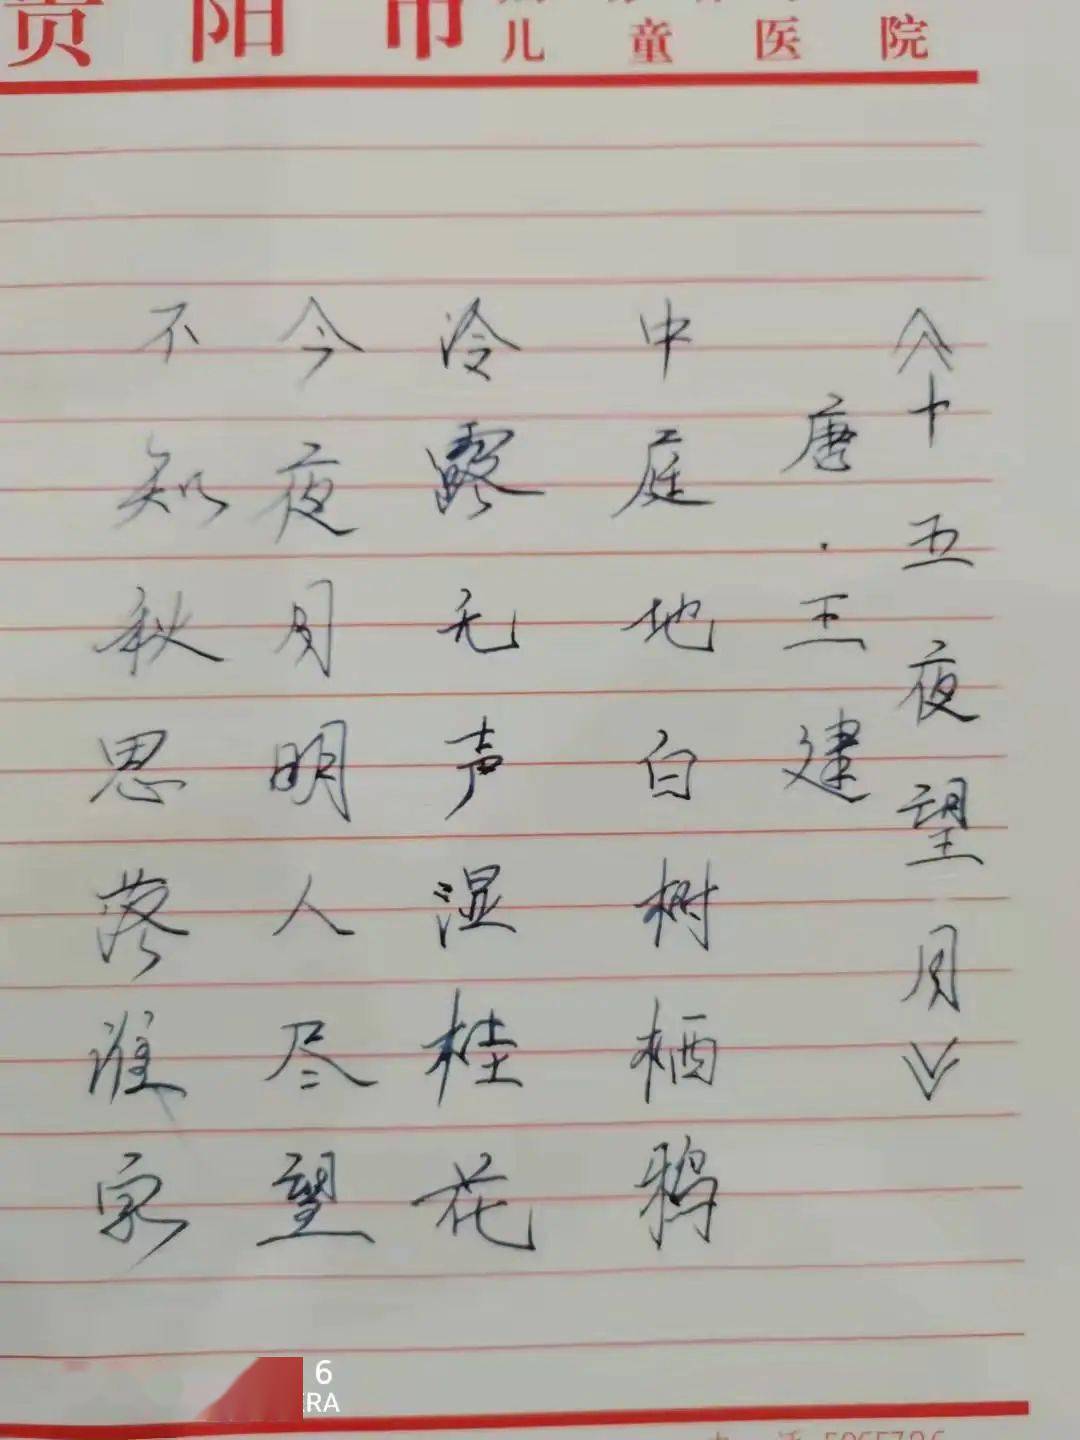 贵阳市
儿童医院
《十五夜望月》
唐·王建
中庭地白树栖鸦
冷露无声湿桂花
今夜月明人尽望
不知秋思落谁家
6
ERA